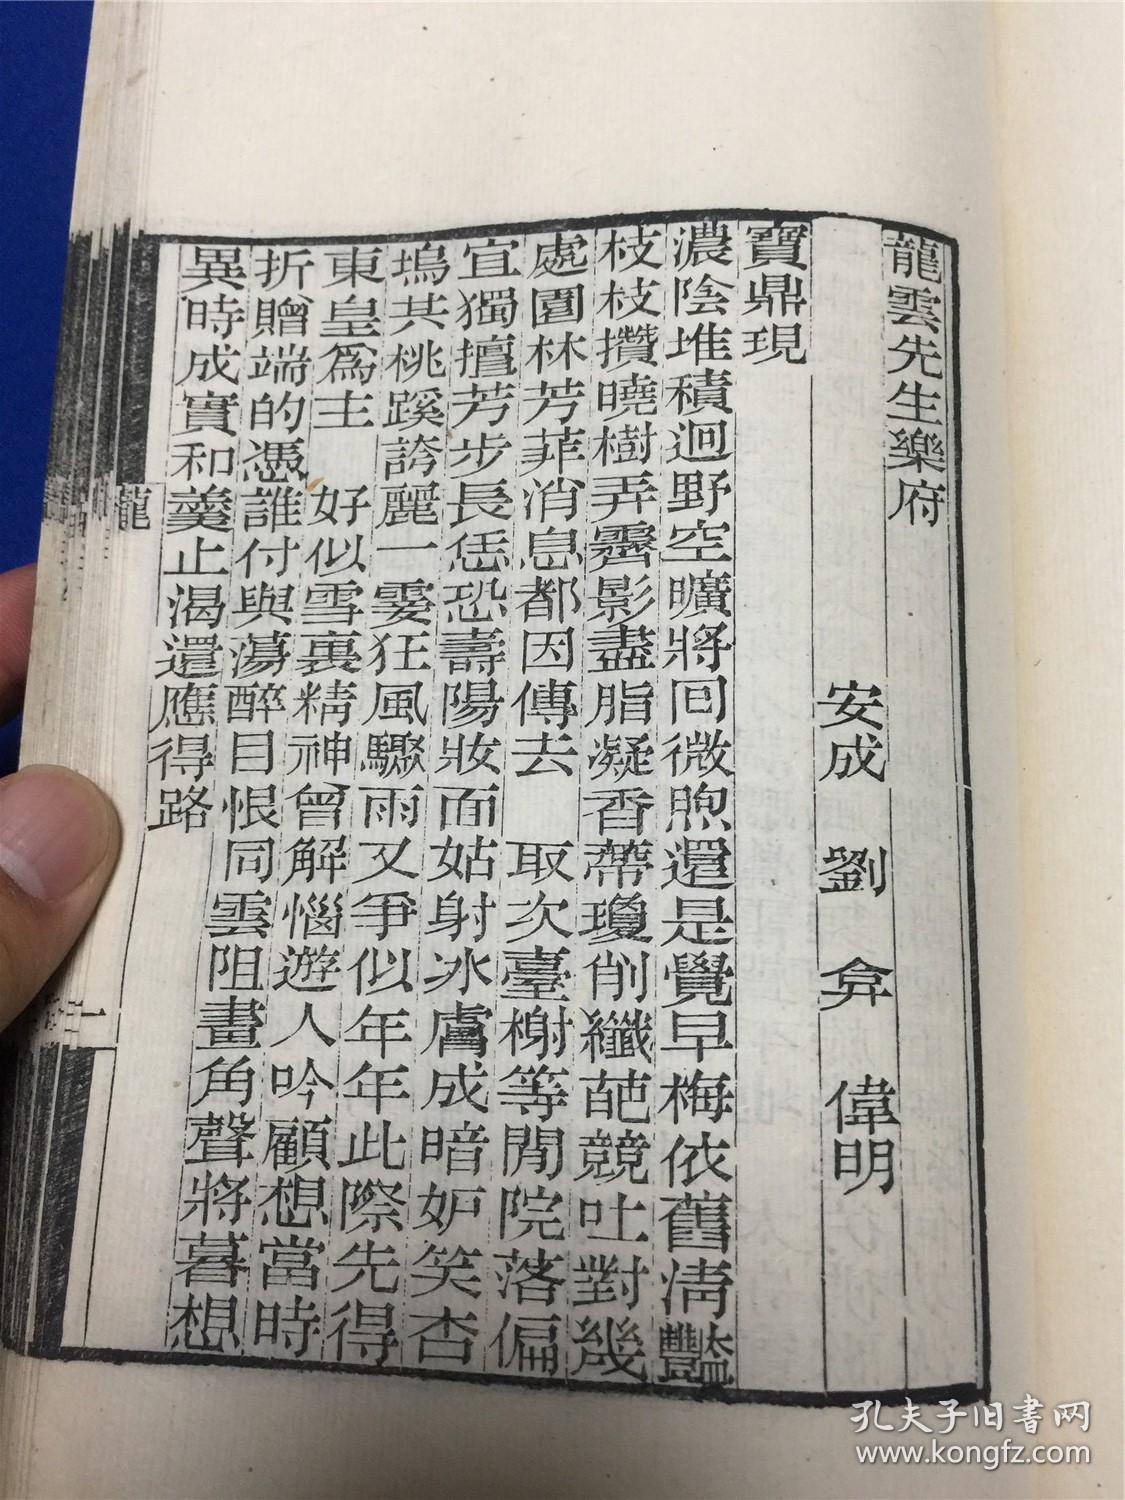 龍雲先生樂府
安成 劉 弇 偉明
寶鼎現
濃陰堆積迥野空曠將回微煦還是覺早梅依舊淸豔
枝枝攢曉樹弄霽影盡脂凝香蒂瓊削纖葩競吐對幾
處園林芳菲消息都因傳去 取次臺榭等閒院落偏
宜獨擅芳步長恁恐壽陽妝面姑射冰膚成暗妒笑杏
塢共桃蹊誇麗一霎狂風驟雨又爭似年年此際先得
東皇爲主 好似雪裏精神曾解惱遊人吟顧想當時
折贈端的憑誰付與蕩醉目恨同雲阻畫角聲將暮想
異時成實和羹止渴還應得路
龍
一
孔夫子旧书网
www.kongfz.com